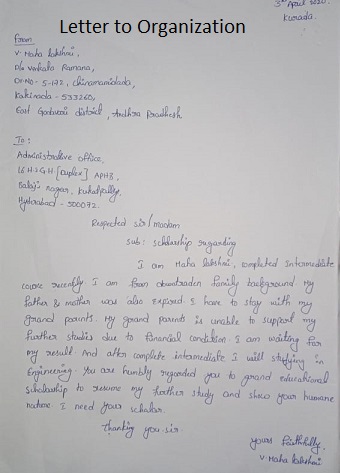 3rd April 2020.
Kurada.
Letter to Organization
From
V. Maha lakshmi,
D/o Venkata Ramana,
Dr-No - 5-172, chinamamidada,
Kakinada - 533260,
East Godavari district, Andhra Pradhesh.
To:
Administrative office,
16 H 2 G H [Duplex] APHB,
Balaji nagar, Kukatpally,
Hyderabad - 500072.
Respected sir/madam
Sub: Schlarship regarding
I am Maha lakshmi, completed Intermediate
course recently. I am from downtraden family background my
father & mother was also expired. I have to stay with my
grand parents. My grand parents is unable to support my
further studies due to financial condition. I am waiting for
my result. And after complete intermediate I will studying in
Engineering. You are humbly regarded you to grand educational
scholarship to resume my further study and show your humane
nature I need your scholar.
Thanking you sir.
yours faithfully,
V. Maha lakshmi